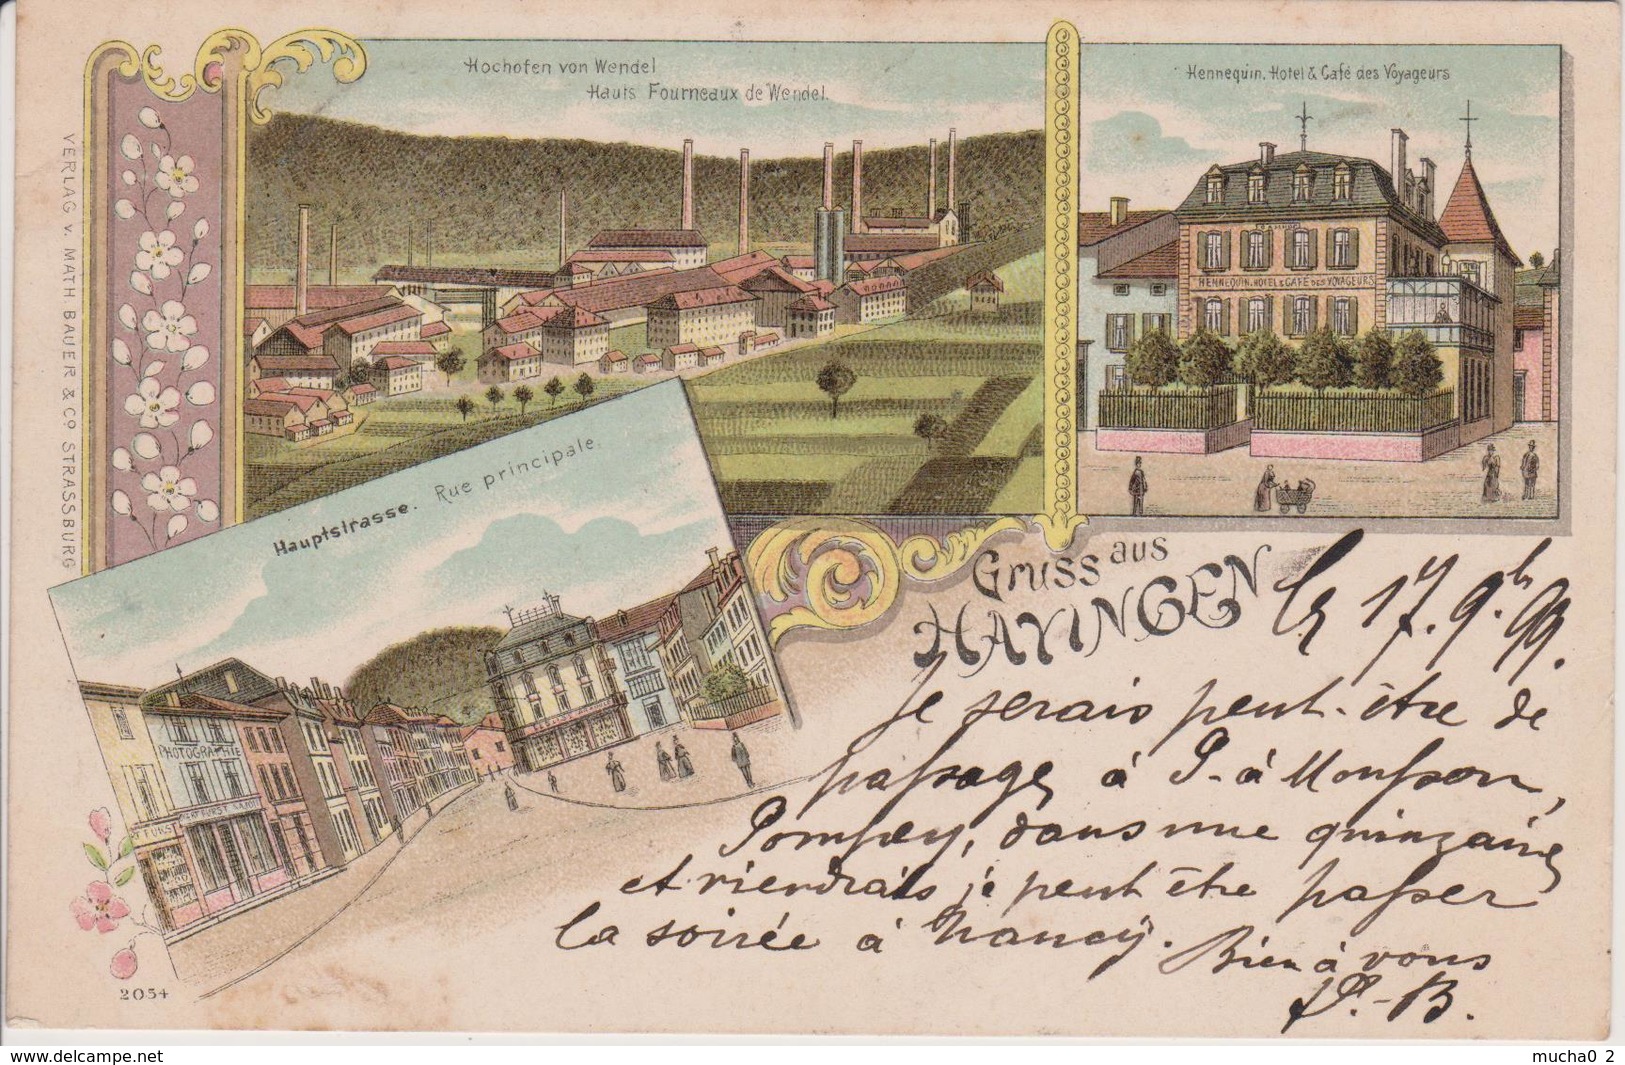 Hochofen von Wendel
Hauts Fourneaux de Wendel.
Hennequin. Hotel & Café des Voyageurs
HENNEQUIN. HOTEL & CAFÉ DES VOYAGEURS
VERLAG v. MATH BAUER & Co STRASSBURG
Hauptstrasse. Rue principale.
PHOTOGRAPHIE
Gruss aus
HAYINGEN
le 17. 9bre 99.
Je serais peut-être de
passage à P-à Mousson,
Pompey, dans une quinzaine
et viendrais je peut être passer
la soirée à Nancy.
Bien à vous
P.-B.
2054
mucha0_2